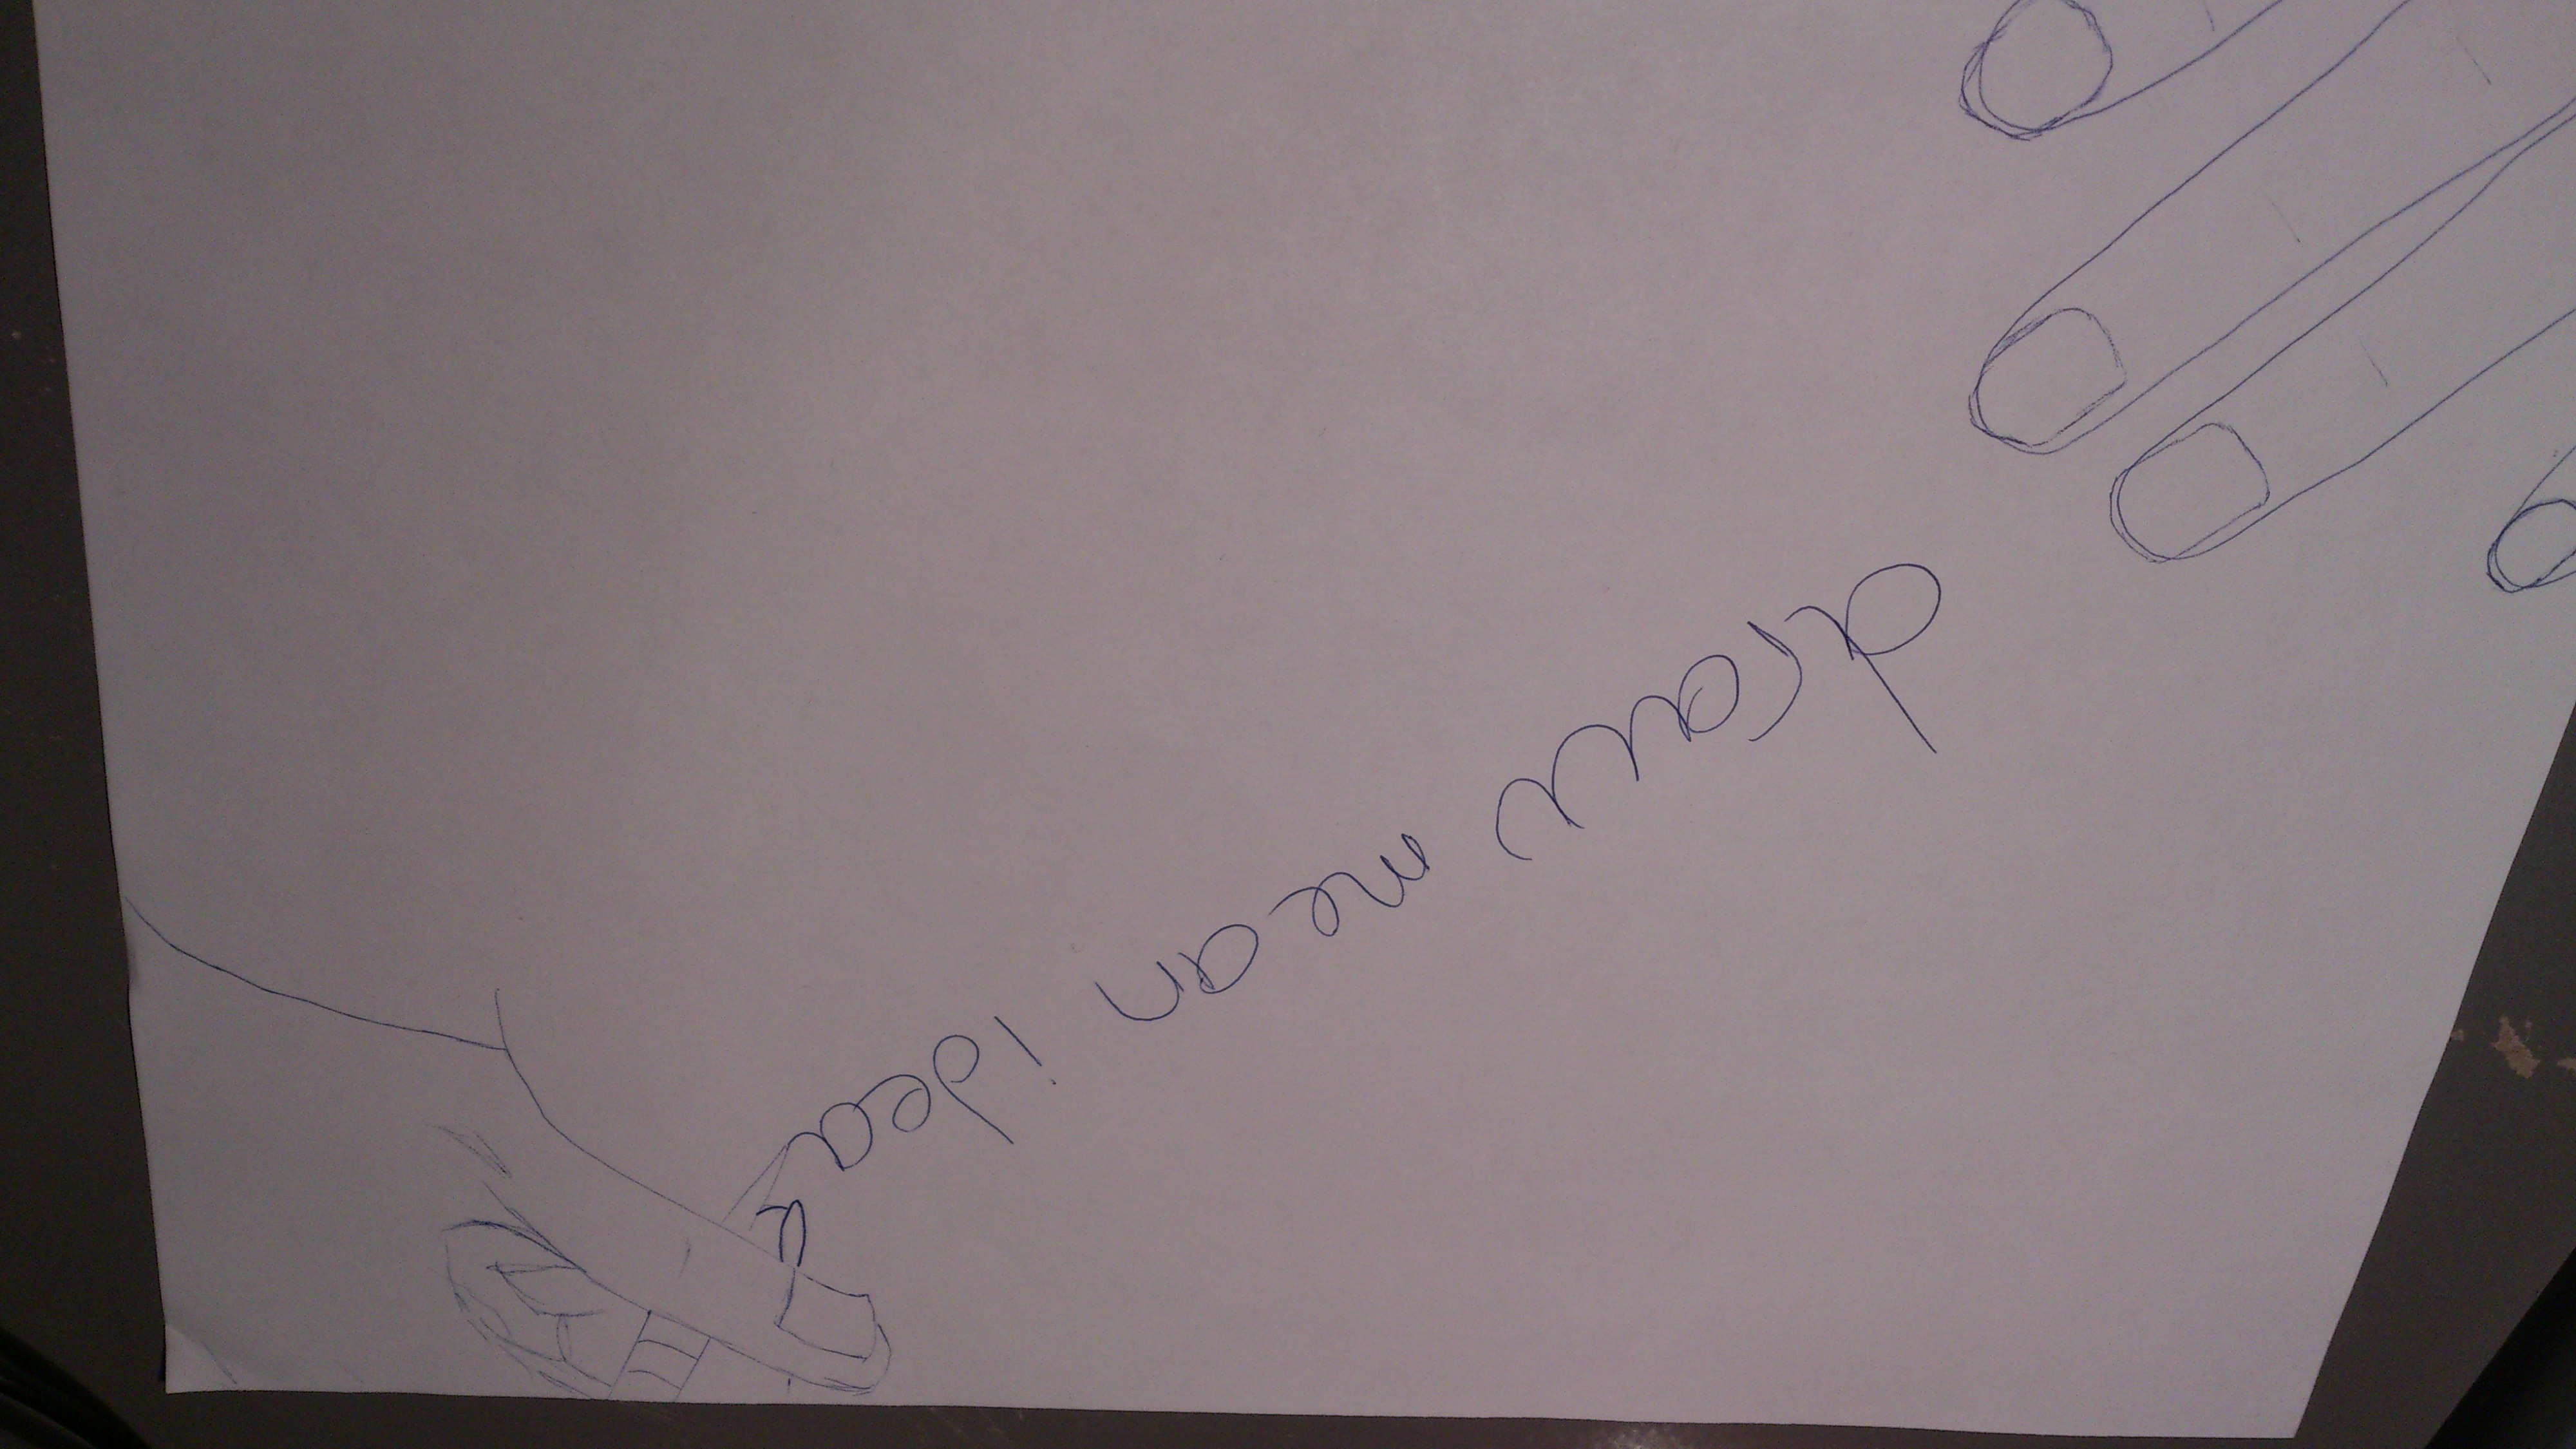 draw me an idea